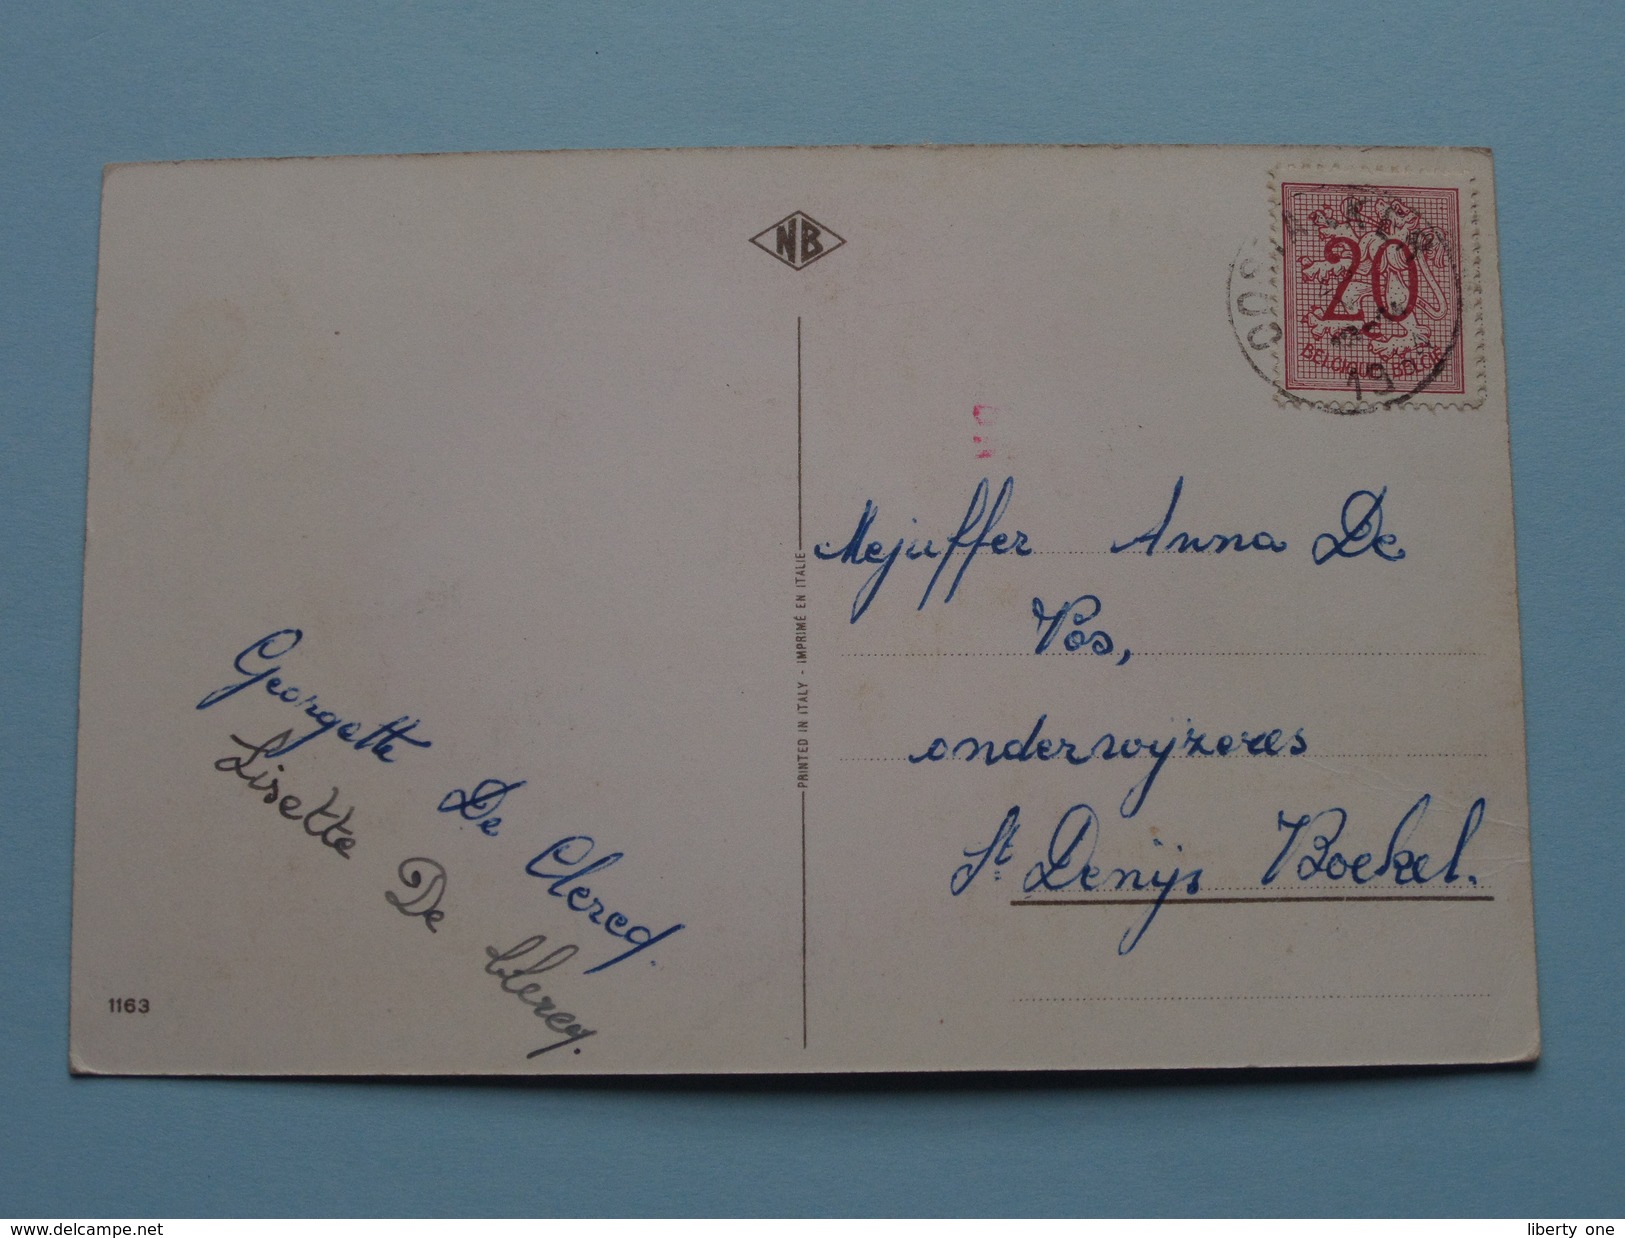 NB
20
BELGIQUE BELGIE
19
Mejuffer Anna De
Vos,
onderwijzeres
St Denijs Boekel.
PRINTED IN ITALY - IMPRIMÉ EN ITALIE
Georgette De Clercq.
Lisette De Clercq.
1163
www.delcampe.net
liberty_one